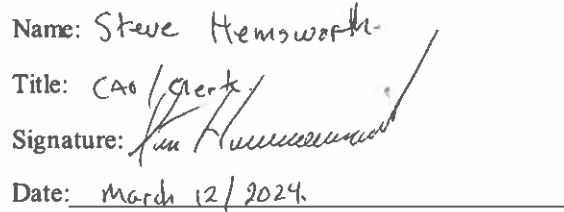 Name: Steve Hemsworth
Title: CAO / Clerk
Signature:
Date: March 12 / 2024.